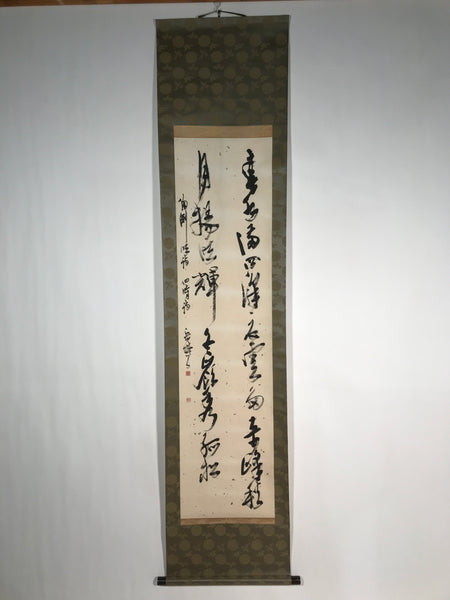 春水満四澤夏雲多奇峰秋
月揚明輝冬嶺秀孤松
陶淵明詩四時歌